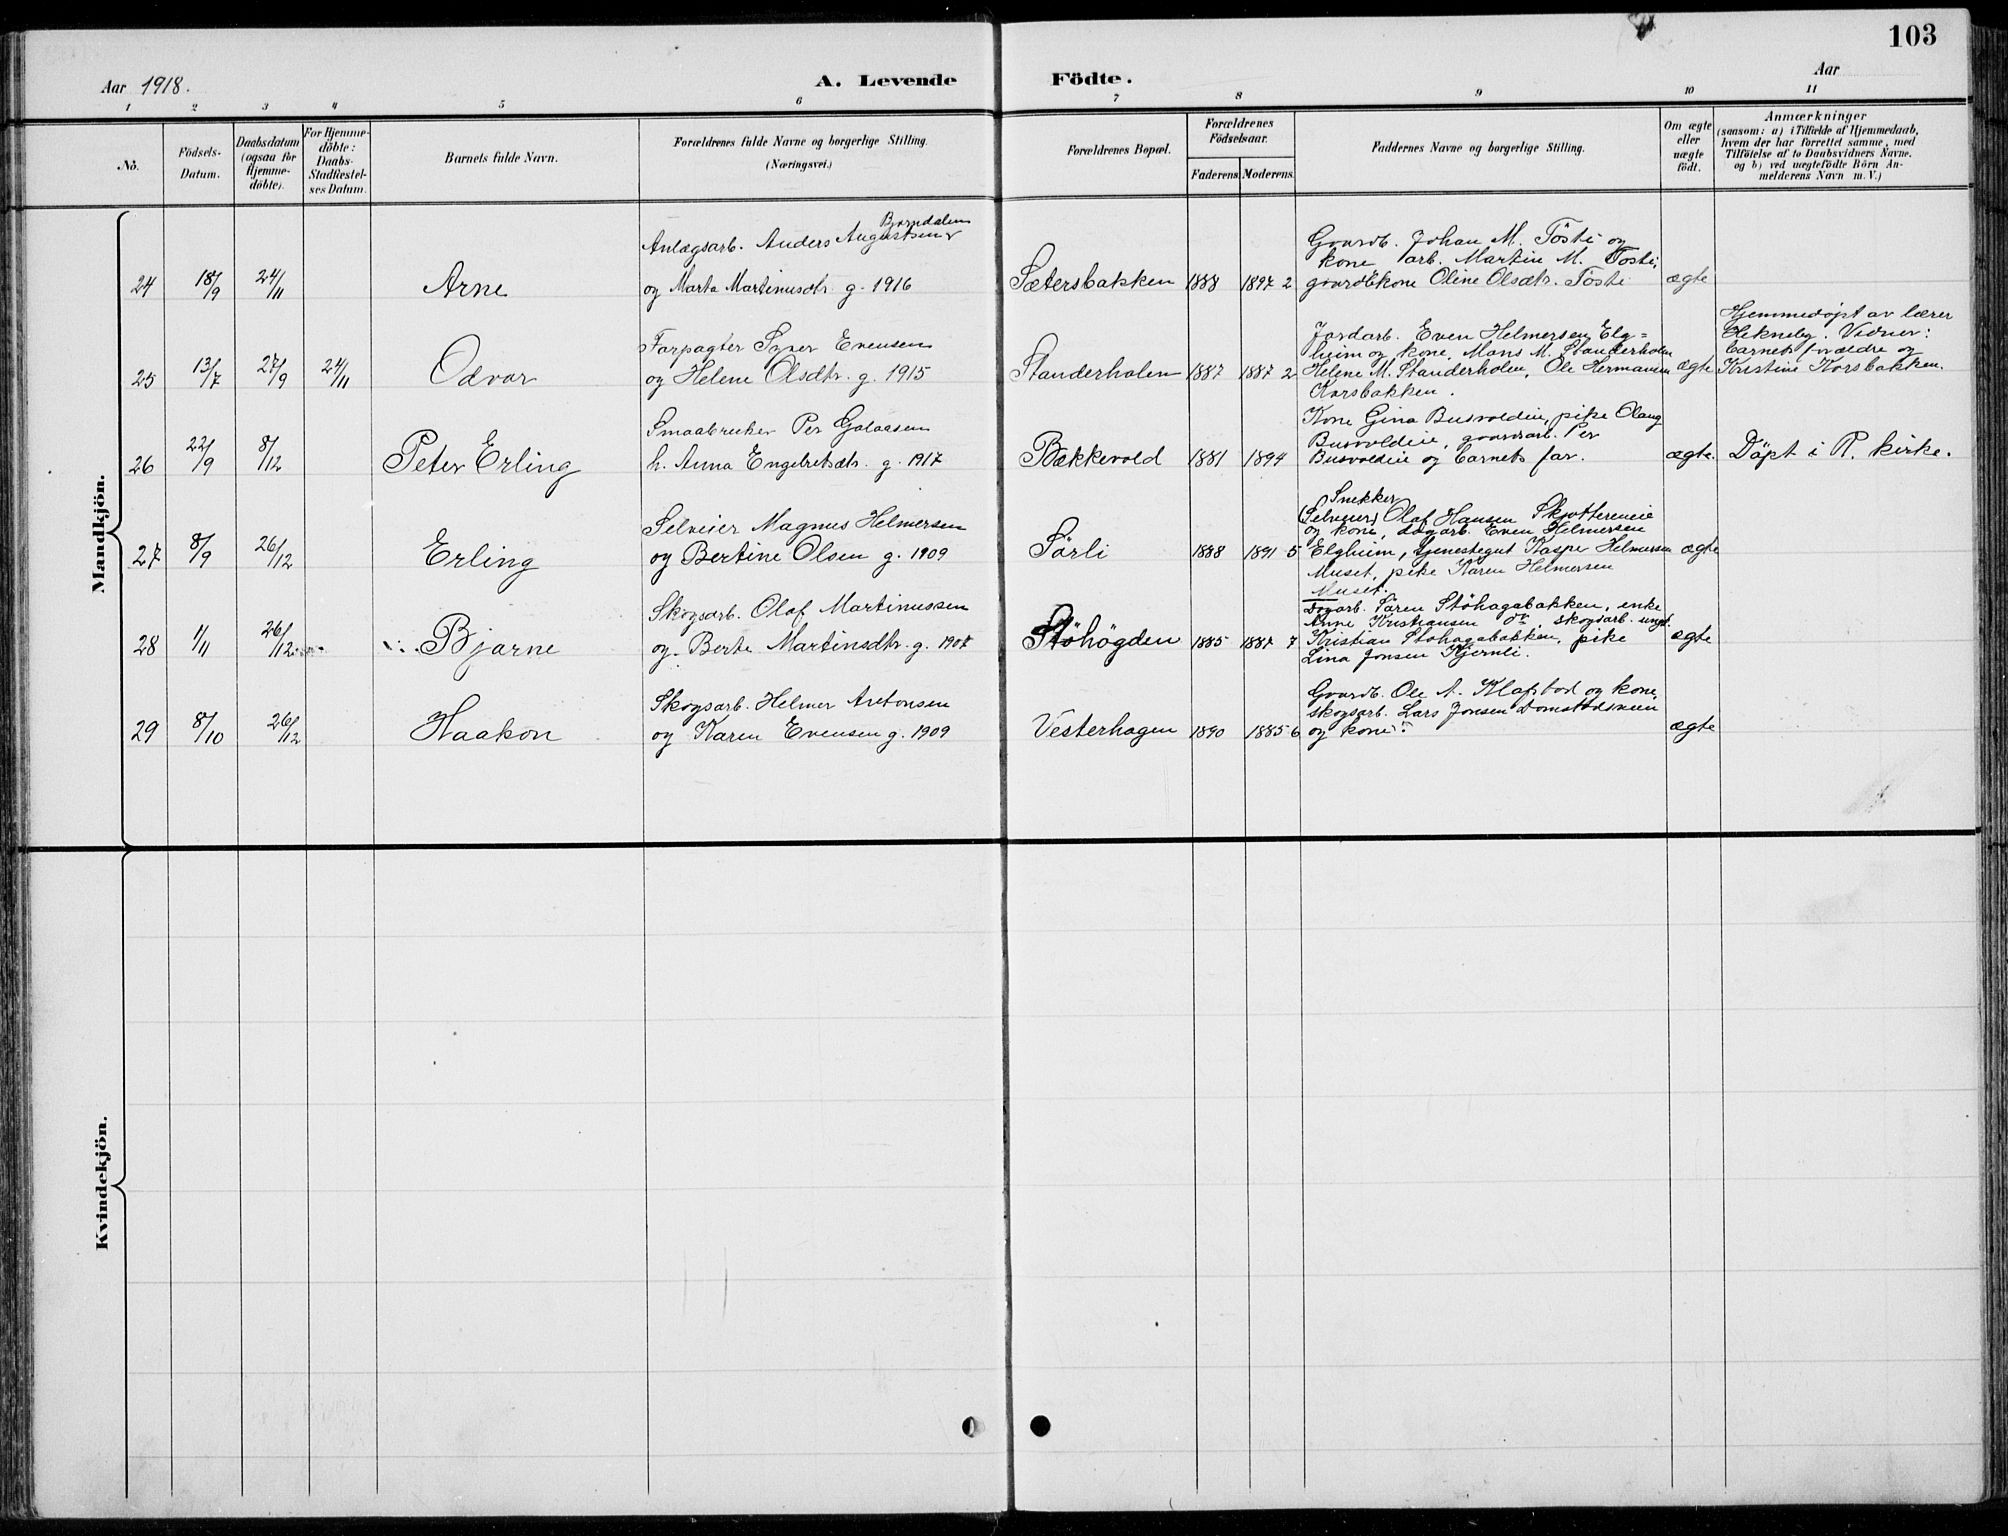 103
Aar 1918.
A. Levende Födte.
Aar
1 2 3 4 5 6 7 8 9 10 11
Nö.
Födsels-Datum.
Daabsdatum (ogsaa for Hjemmedöbte).
For Hjemmedöbte: Daabs-Stadfæstelses Datum.
Barnets fulde Navn.
Forældrenes fulde Navne og borgerlige Stilling. (Næringsvei.)
Forældrenes Bopæl.
Forældrenes Födselsaar.
Faderens. Moderens.
Faddernes Navne og borgerlige Stilling.
Om ægte eller uægte födt.
Anmærkninger
(saasom: a) i Tilfælde af Hjemmedaab,
hvem der har forrettet samme, med
Tilföielse af to Daabsvidners Navne.
og b) ved uægtefödte Börn An-
melderens Navn m. V.)
Mandkjön.
24 18/9 24/11 Arne
Anlægsarb. Anders Augustsen Bjørndalen
og Marta Martinusdtr. g. 1916
Sætersbakken 1888 1897 2
Gaardb. Johan M. Tösti og
kone, arb. Martin M. Tösti,
gaardbkone Oline Olsdtr. Tösti
ægte
25 13/7 27/9 24/11 Odvar
Forpagter Syver Evensen
og Helene Olsdtr. g. 1915
Standerholen 1887 1887 2
Jordarb. Even Helmersen Elg=
heim og kone, Mons M. Standerholen
Helene M. Standerholen, Ole Hermansen
Korsbakken.
ægte
Hjemmedøpt av lærer
Hekneby. Vidner:
barnets forældre og
Kristine Korsbakken.
26 22/9 8/12 Peter Erling
Smaabruker Per Golaasen
h. Anna Engebretsdtr. g. 1917
Bækkevold 1881 1894
Kone Gina Busvoldeie, pike Olaug
Busvoldeie, gaardarb. Per
Busvoldeie og barnets far.
ægte. Döpt i R. kirke.
27 8/9 26/12 Erling
Selveier Magnus Helmersen
og Bertine Olsen g. 1909
Sörli 1888 1891 5
Snekker
(Selveier) Olaf Hansen Skjøttereneie
og kone, dagarb. Even Helmersen
Elgheim, tjenestegut Kasper Helmersen
Muset, pike Karen Helmersen
Muset.
ægte
28 1/11 26/12 Bjarne
Skogsarb. Olaf Martinussen
og Berte Martinsdtr. g. 1907
Stöhögden 1885 1887 7
Dagarb. Sören Stöhagabakken, enke
Anne Kristiansen do, skogsarb. ungk.
Kristian Stöhagabakken, pike
Lina Jonsen Kjernli.
ægte
29 8/10 26/12 Haakon
Skogsarb. Helmer Antonsen
og Karen Evensen g. 1909
Vesterhagen 1890 1885 6
Gaardb. Ole A. Klafstad og kone,
skogsarb. Lars Jonsen Domstadsveen
og kone.
ægte
Kvindekjön.